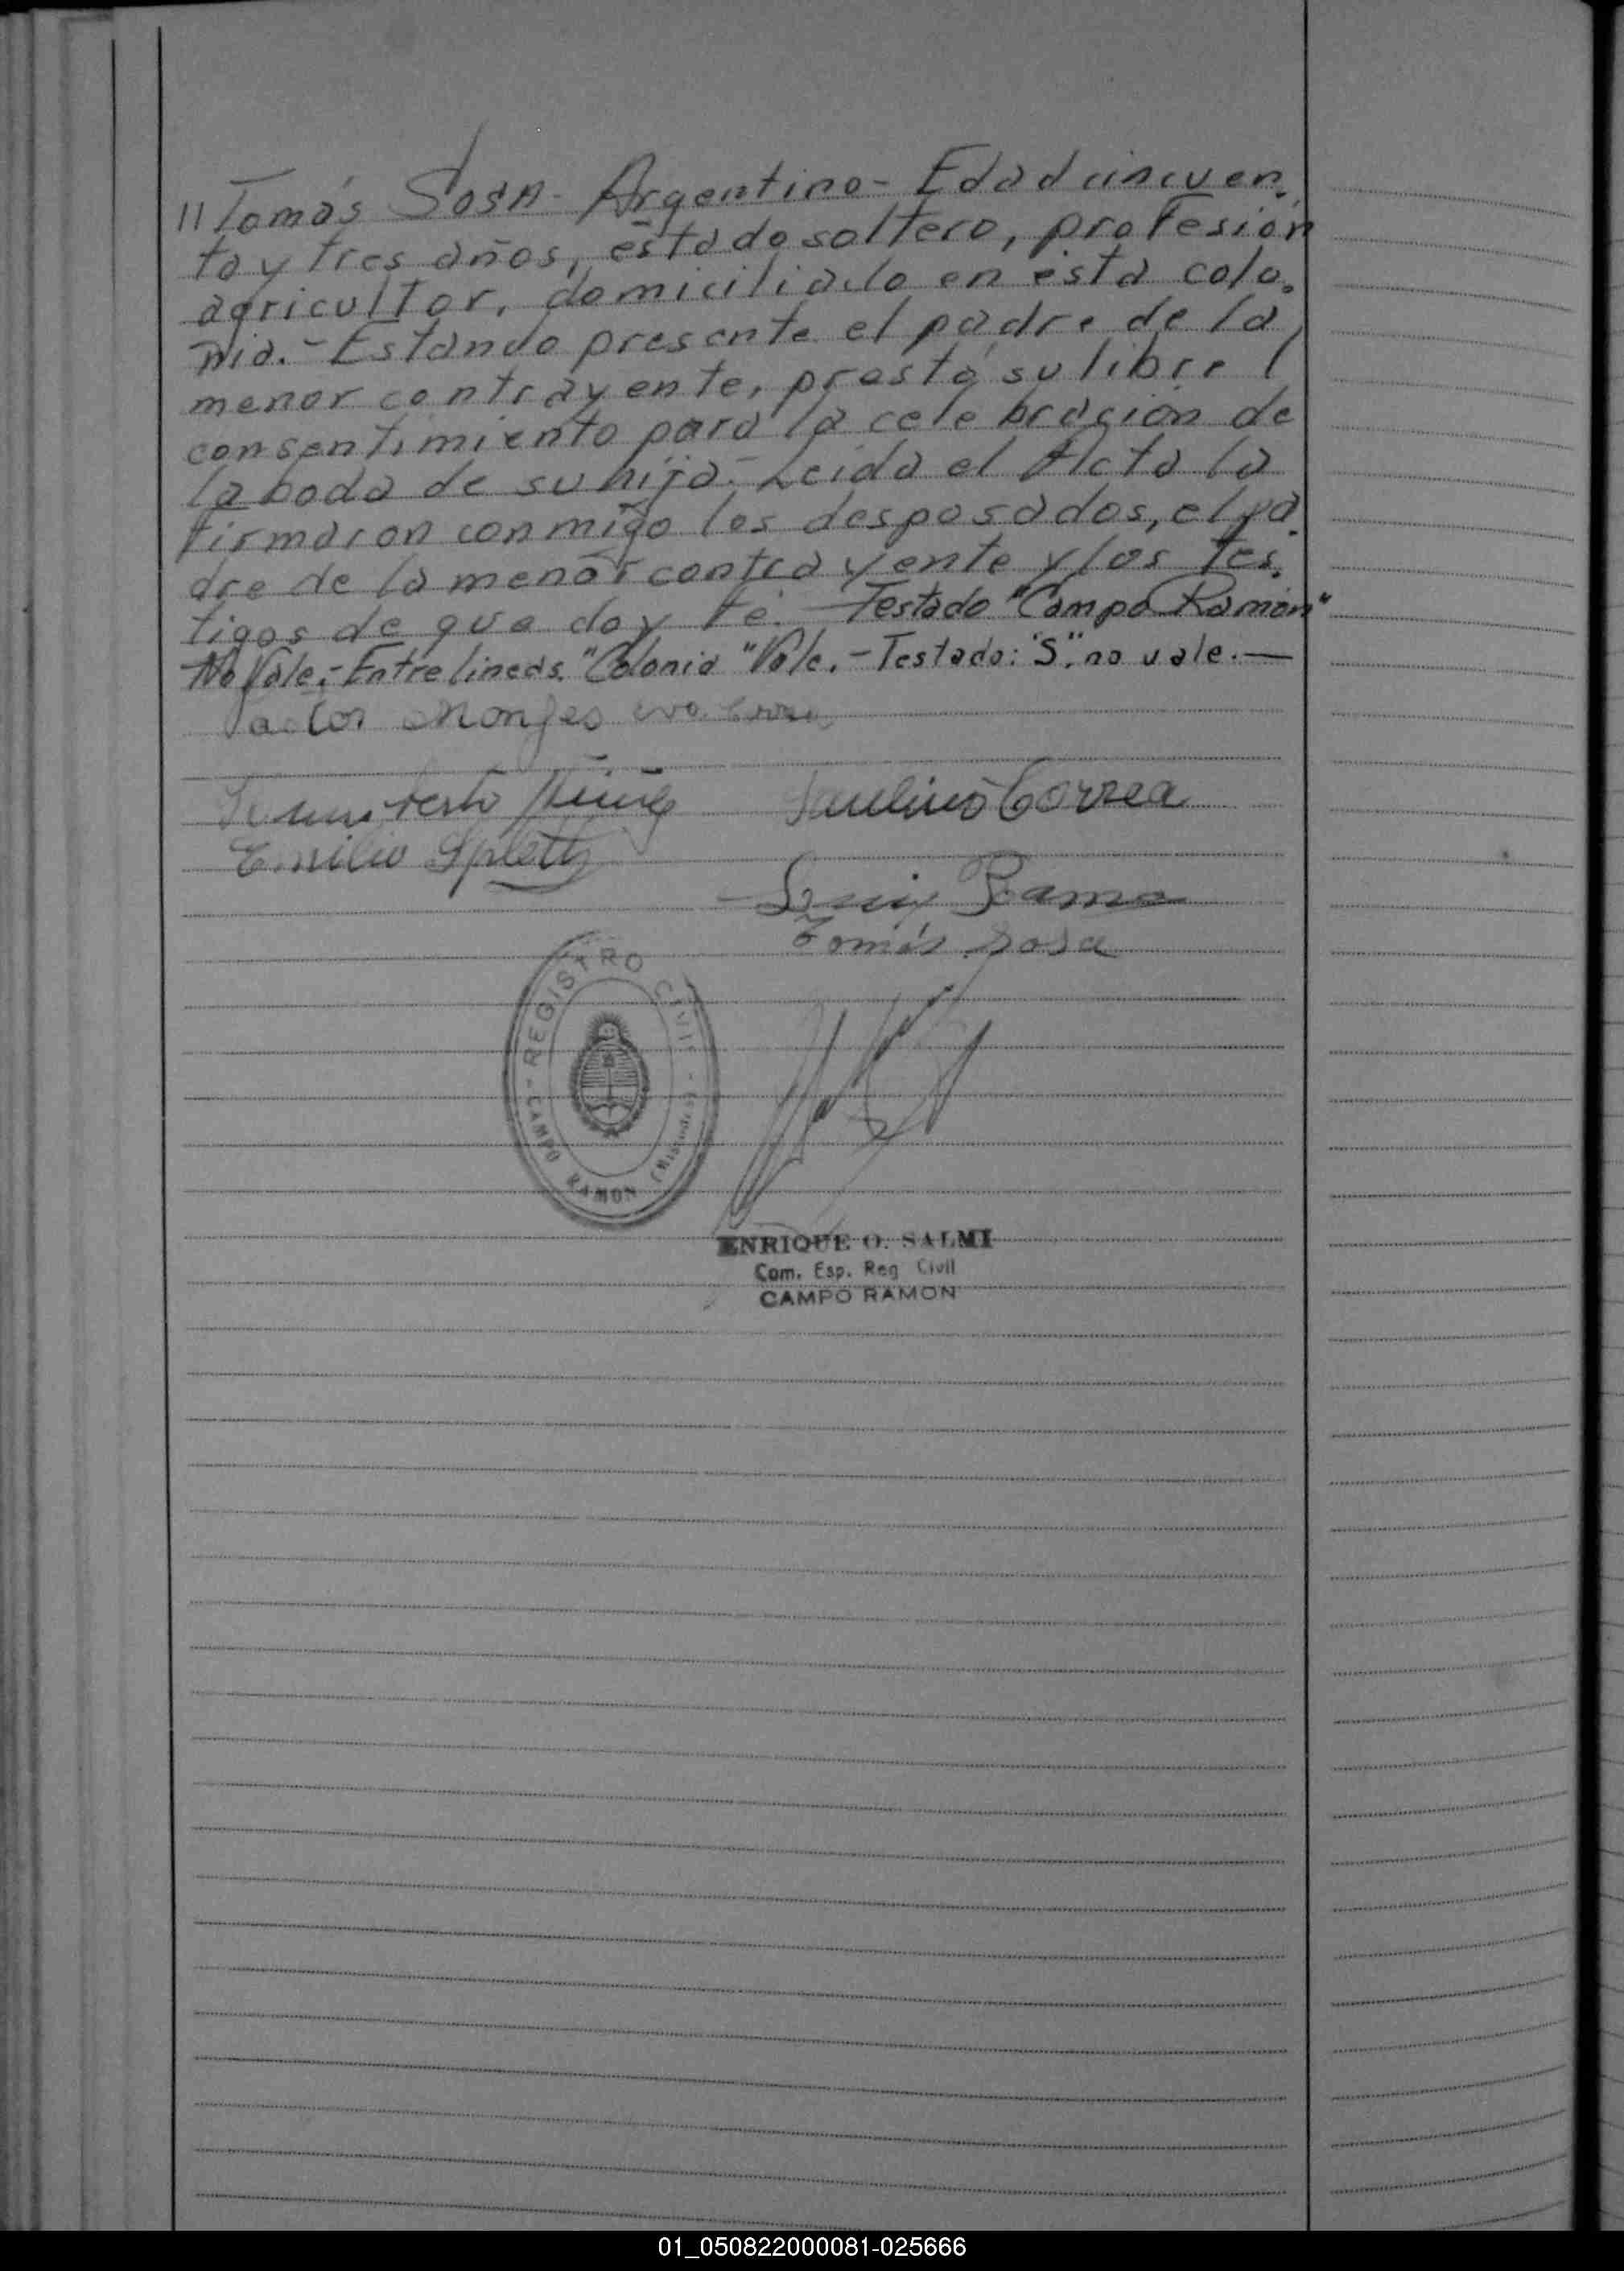 "Tomás Sosa - Argentino - Edad cincuen.
ta y tres años, estado soltero, profesión
agricultor, domiciliado en ésta colo.
nia. - Estando presente el padre de la
menor contrayente, prestá su libre
consentimiento para la celebración de
la boda de su hija - Leida el Acta la
firmaron conmigo los desposados, el pa.
dre de la menor contrayente y los tes.
tigos de que doy fé. Testado "Campo Ramón"
No Vale. - Entre lineas. "Colonia" Vale. - Testado: "S". no vale. —
Monges
Paulino Correa
Emilio Splett
Luis Ramo
Tomás Sosa
REGISTRO CIVIL - CAMPO RAMON (Misiones) -
ENRIQUE O. SALMI
Com. Esp. Reg Civil
CAMPO RAMON
01_050822000081-025666